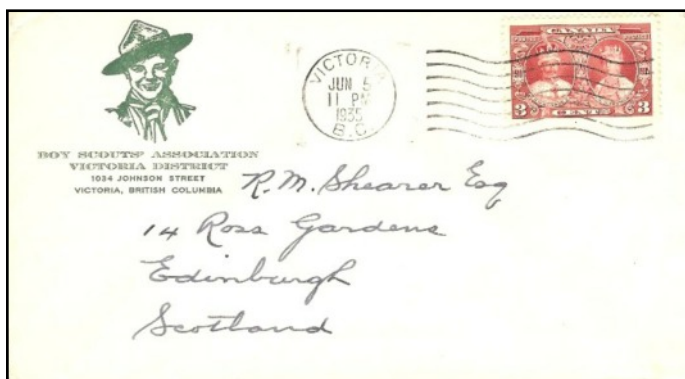 BOY SCOUTS' ASSOCIATION
VICTORIA DISTRICT
1034 JOHNSON STREET
VICTORIA, BRITISH COLUMBIA
VICTORIA
JUN 5
11 PM
1935
B.C.
CANADA
3 CENTS 3
R. M. Shearer Esq
14 Ross Gardens
Edinburgh
Scotland